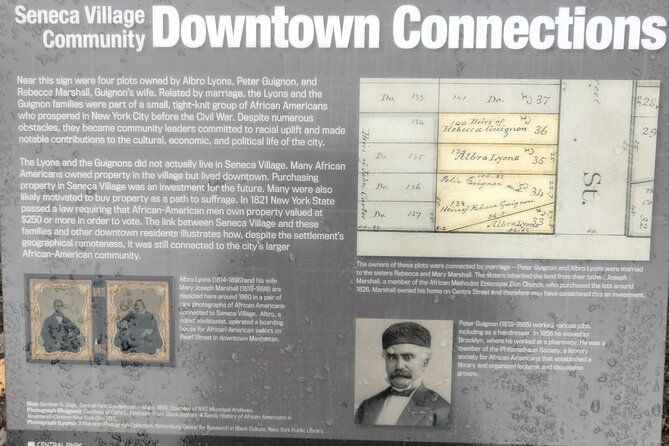 Seneca Village
Community
Downtown Connections
Near this sign were four plots owned by Albro Lyons, Peter Guignon, and
Rebecca Marshall, Guignon's wife. Related by marriage, the Lyons and the
Guignon families were part of a small, tight-knit group of African Americans
who prospered in New York City before the Civil War. Despite numerous
obstacles, they became community leaders committed to racial uplift and made
notable contributions to the cultural, economic, and political life of the city.
The Lyons and the Guignons did not actually live in Seneca Village. Many African
Americans owned property in the village but lived downtown. Purchasing
property in Seneca Village was an investment for the future. Many were also
likely motivated to buy property as a path to suffrage. In 1821 New York State
passed a law requiring that African-American men own property valued at
$250 or more in order to vote. The link between Seneca Village and these
families and other downtown residents illustrates how, despite the settlement's
geographical remoteness, it was still connected to the city's larger
African-American community.
Do. 133 141 Do. 37
140 Heirs of
Rebecca Guignon 36
Do. 135 Albro Lyons 35
Do. 136 Peter Guignon 34
Do. 137 138 Heirs of Rebecca Guignon 33
Albro Lyons
St.
25
29
32
The owners of these plots were connected by marriage – Peter Guignon and Albro Lyons were married
to the sisters Rebecca and Mary Marshall. The sisters inherited the land from their father, Joseph
Marshall, a member of the African Methodist Episcopal Zion Church, who purchased the lots around
1826. Marshall owned his home on Centre Street and therefore may have considered this an investment.
Albro Lyons (1814-1896) and his wife
Mary Joseph Marshall (1815-1899) are
depicted here around 1860 in a pair of
rare photographs of African Americans
connected to Seneca Village. Albro, a
noted abolitionist, operated a boarding
house for African-American sailors on
Pearl Street in downtown Manhattan.
Peter Guignon (1813-1885) worked various jobs,
including as a hairdresser. In 1858 he moved to
Brooklyn, where he worked at a pharmacy. He was a
member of the Philomathean Society, a literary
society for African Americans that established a
library and organized lectures and discussion
groups.
Map: Gardner A. Sage, Central Park Condemnation Maps, 1856. Courtesy of NYC Municipal Archives.
Photograph (Guignon): Courtesy of Carla L. Peterson, from Black Gotham: A Family History of African Americans in
Nineteenth-Century New York City, 2011.
Photograph (Lyons): Williamson Photograph Collection, Schomburg Center for Research in Black Culture, New York Public Library.
CENTRAL PARK